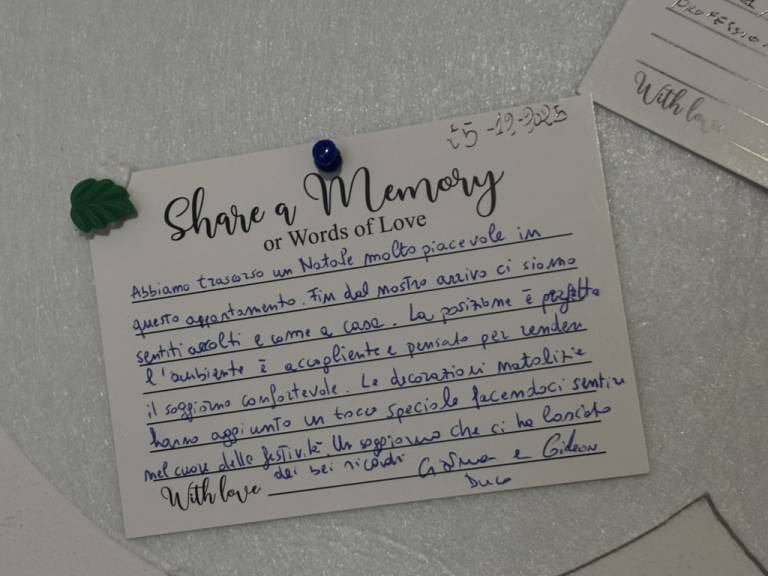 25-12-2025
Share a Memory
or Words of Love
Abbiamo trascorso un Natale molto piacevole in
questo appartamento. Fin dal nostro arrivo ci siamo
sentiti accolti e come a casa. La posizione è perfetta
l'ambiente è accogliente e pensato per rendere
il soggiorno confortevole. Le decorazioni natalizie
hanno aggiunto un tocco speciale facendoci sentire
nel cuore delle festività. Un soggiorno che ci ha lasciato
dei bei ricordi
With love
e Gideon
With love